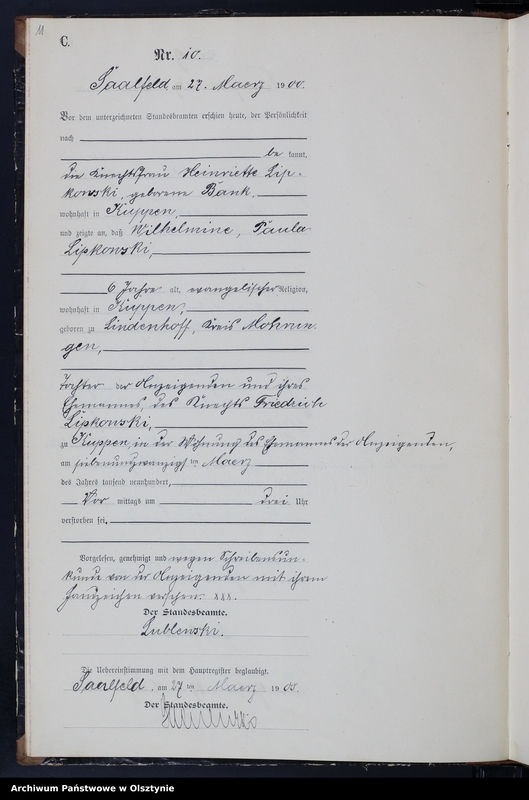 11
C.
Nr. 10.
Saalfeld am 27. Maerz 1900.
Vor dem unterzeichneten Standesbeamten erschien heute, der Persönlichkeit
nach
be kannt,
die Knechtsfrau Heinriette Lip-
kowski, geborene Bank,
wohnhaft in Kuppen,
und zeigte an, daß Wilhelmine, Paula
Lipkowski,
6 Jahre alt, evangelischer Religion,
wohnhaft in Kuppen,
geboren zu Lindenhoff, Kreis Mohrun-
gen,
Tochter der Anzeigenden und ihres
Ehemannes, des Knechts Friedrich
Lipkowski,
zu Kuppen, in der Wohnung des Ehemannes der Anzeigenden,
am siebenundzwanzigsten Maerz
des Jahres tausend neunhundert,
Vor mittags um drei Uhr
verstorben sei.
Vorgelesen, genehmigt und wegen Schreibensun-
kunde von der Anzeigenden mit ihrem
Handzeichen versehen. xxx.
Der Standesbeamte.
Lublenski.
Die Uebereinstimmung mit dem Hauptregister beglaubigt.
Saalfeld, am 27 ten Maerz 1900.
Der Standesbeamte.
Archiwum Państwowe w Olsztynie